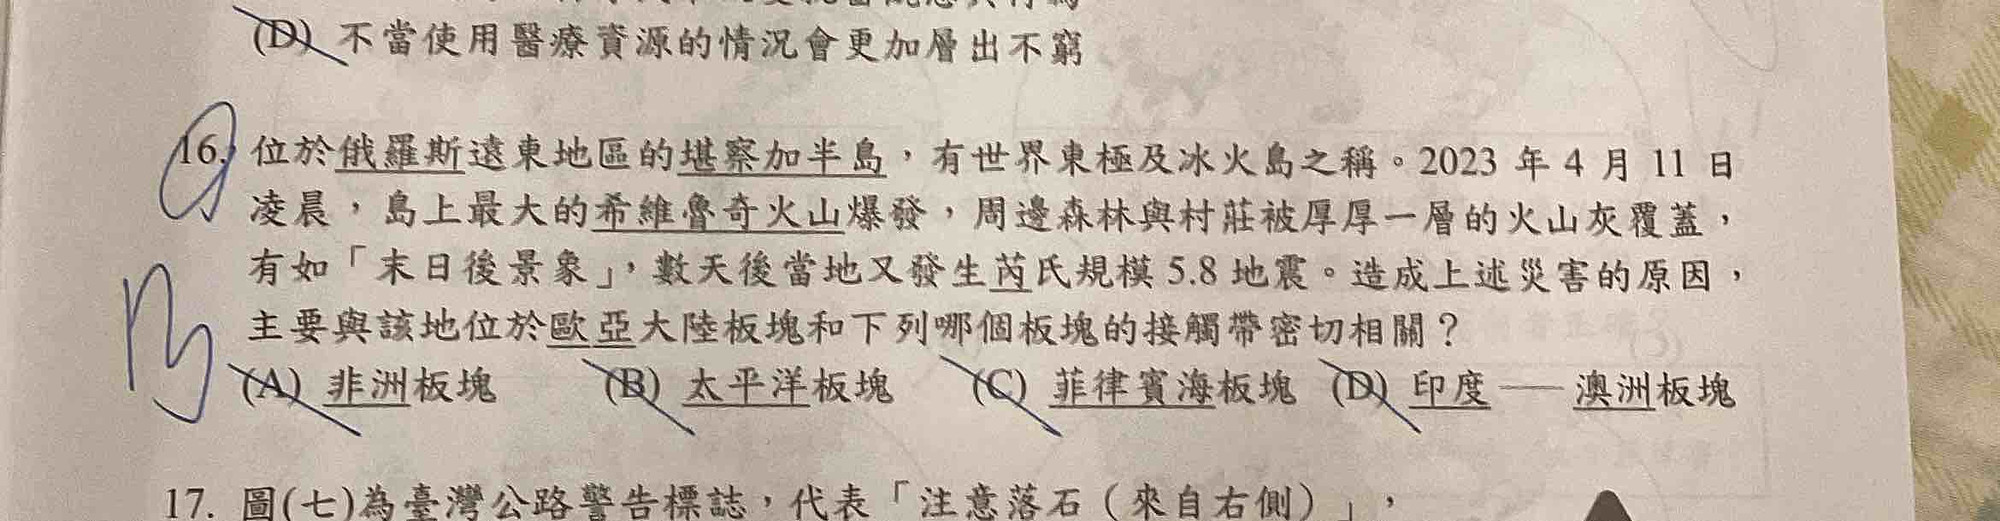 (D) 不當使用醫療資源的情況會更加層出不窮
16. 位於俄羅斯遠東地區的堪察加半島，有世界東極及冰火島之稱。2023 年 4 月 11 日
凌晨，島上最大的希維魯奇火山爆發，周邊森林與村莊被厚厚一層的火山灰覆蓋，
有如「末日後景象」，數天後當地又發生芮氏規模 5.8 地震。造成上述災害的原因，
主要與該地位於歐亞大陸板塊和下列哪個板塊的接觸帶密切相關？
(A) 非洲板塊 (B) 太平洋板塊 (C) 菲律賓海板塊 (D) 印度——澳洲板塊
17. 圖(七)為臺灣公路警告標誌，代表「注意落石（來自右側）」，